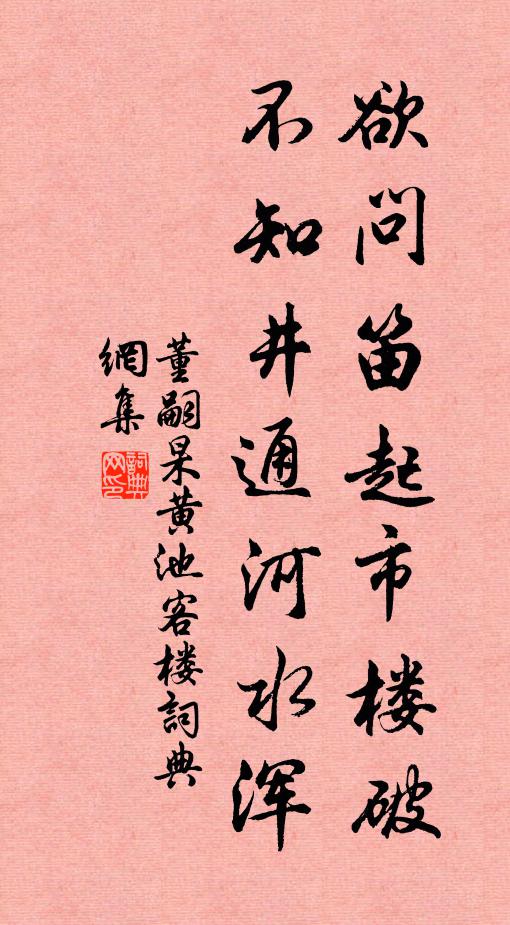 欲问笛起市楼破
不知井通河水浑
董嗣杲黄池客楼詞典
網集
詞典网印